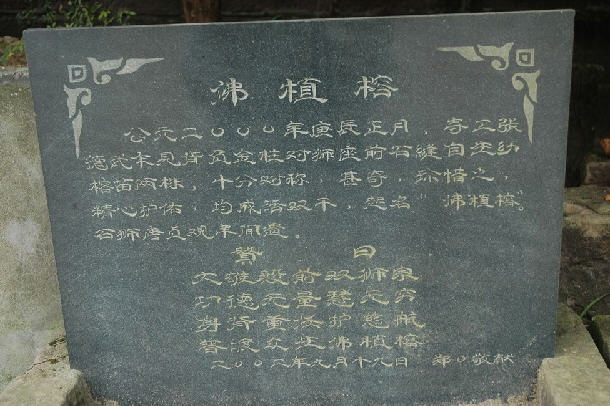 沸植榕
公元二〇〇〇年庚辰正月，寺工张
德武本见背负金柱对狮座前石缝自生幼
榕苗两株，十分对称，甚奇，珍惜之，
精心护佑，均成活双干，定名“沸植榕”。
石狮唐贞观年间遗。
赞曰
大雄殿前双狮
功德无量建无穷
身背重 护慈航
普渡众生沸植榕
二〇〇六年九月十九日 敬献